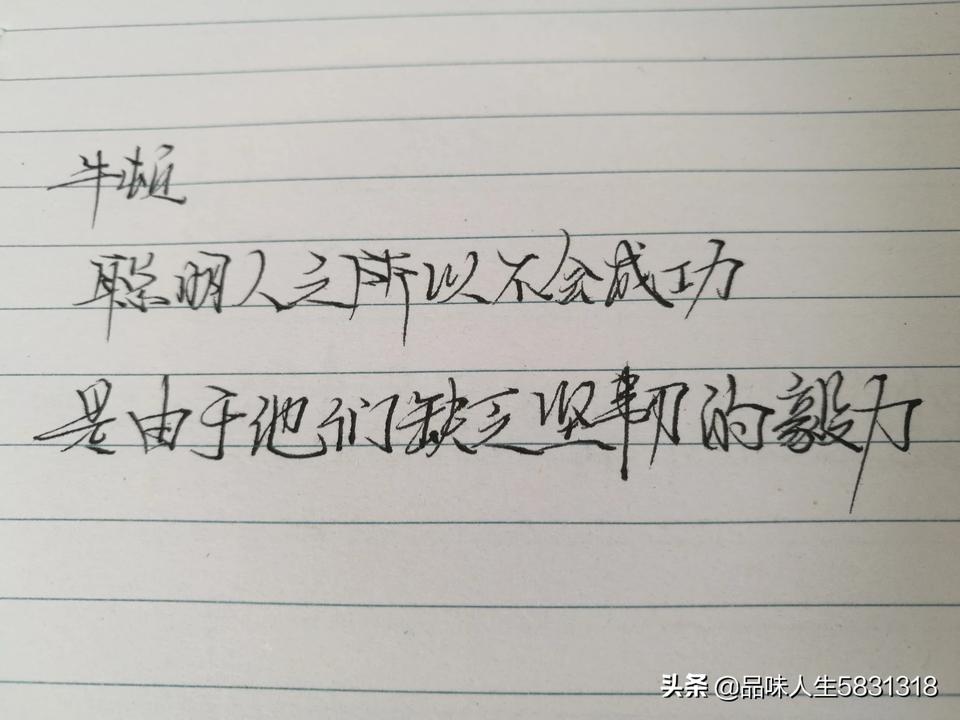 牛顿
聪明人之所以不会成功
是由于他们缺乏坚韧的毅力
头条 @品味人生5831318